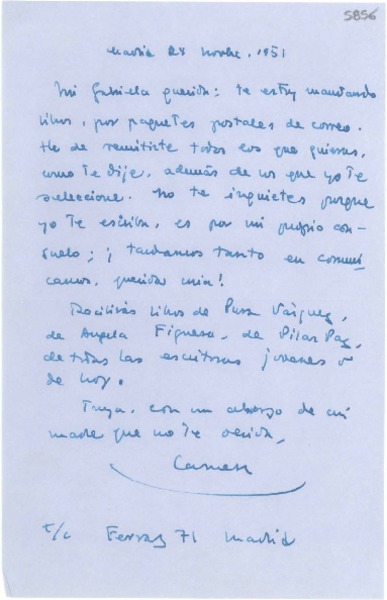 5856
Madrid 28 novbre, 1951
Mi Gabriela querida: te estoy mandando
libros, por paquetes postales de correo.
He de remitirte todos los que quieras,
como te dije, además de los que yo te
seleccione. No te inquietes porque
yo te escriba, es por mi propio con-
suelo; ¡tardamos tanto en comuni
carnos, querida mía!
Recibirás libros de Pura Vázquez,
de Angela Figuera, de Pilar Paz,
de todas las escritoras jóvenes
de hoy.
Tuya, con un abrazo de mi
madre que no te olvida,
Carmen
Ferraz 71 Madrid